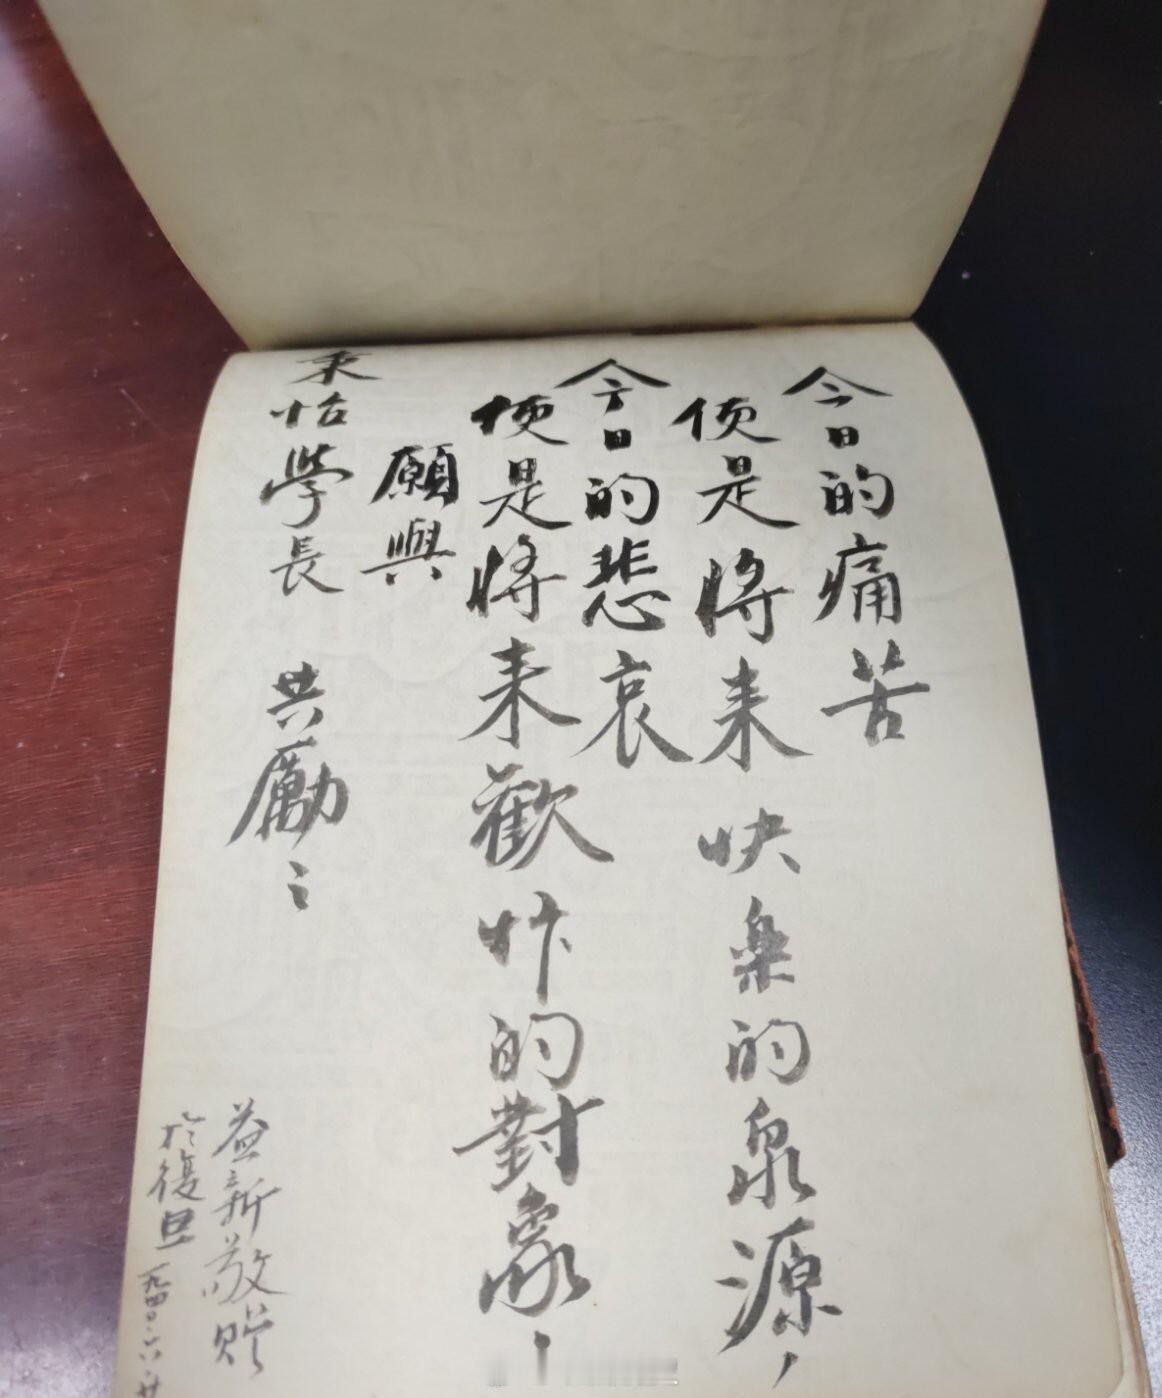 今日的痛苦
便是将来快樂的泉源，
今日的悲哀
便是将来歡忭的對象！
願與
秉怡學長 共勵之
益新敬贈
於復旦 一九四〇.六.廿